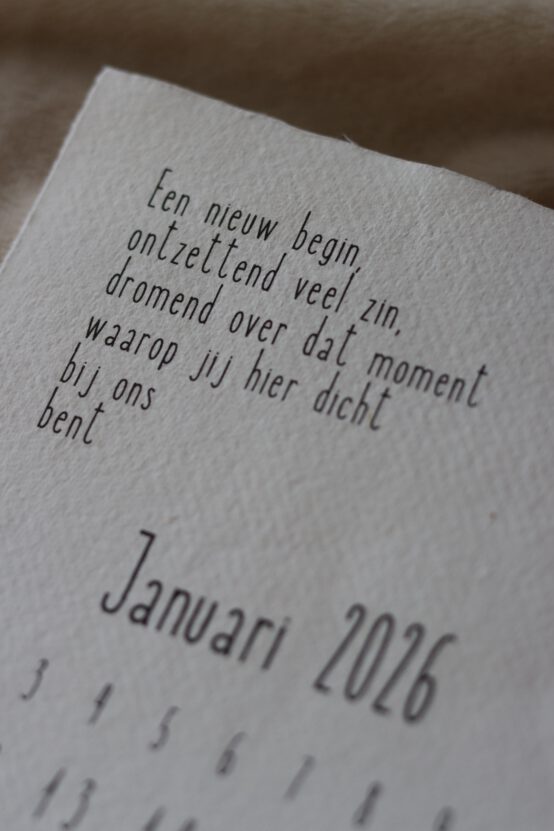 Een nieuw begin,
ontzettend veel zin,
dromend over dat moment
waarop jij hier dicht
bij ons
bent
Januari 2026
3 4 5 6 7 8 9
13